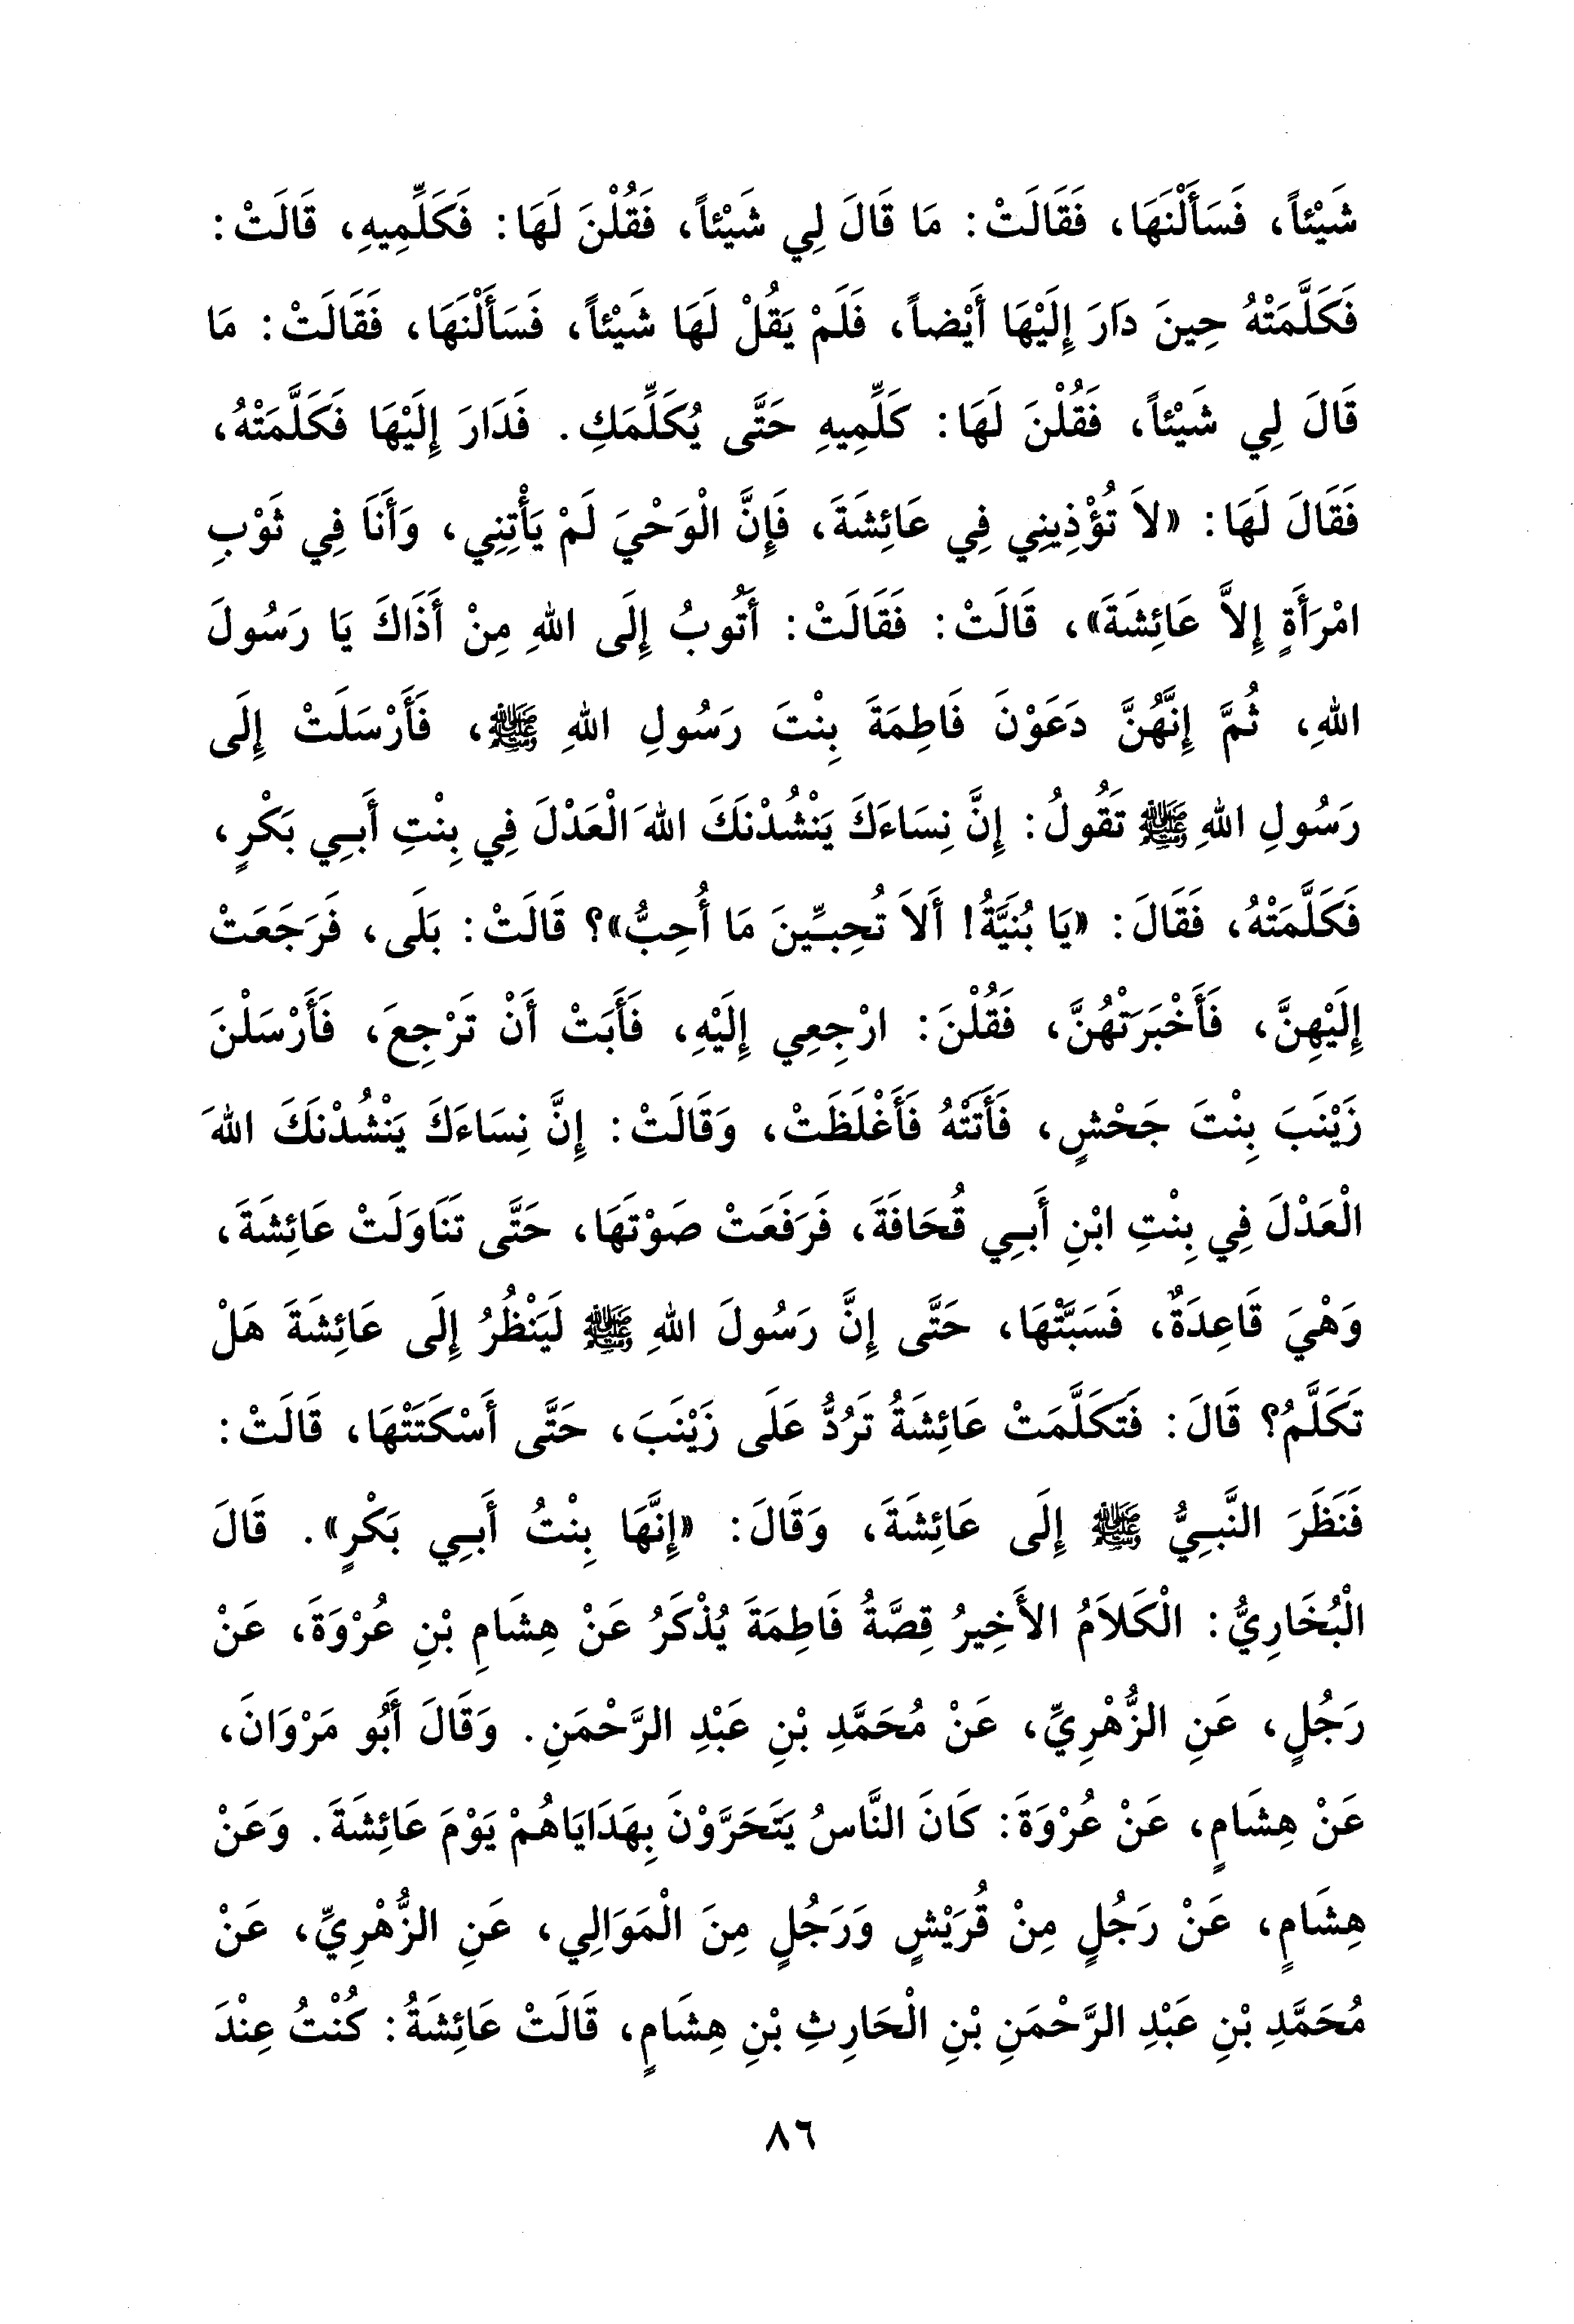 شَيْئاً، فَسَأَلْنَهَا، فَقَالَتْ: مَا قَالَ لِي شَيْئاً، فَقُلْنَ لَهَا: فَكَلِّمِيهِ، قَالَتْ:
فَكَلَّمَتْهُ حِينَ دَارَ إِلَيْهَا أَيْضاً، فَلَمْ يَقُلْ لَهَا شَيْئاً، فَسَأَلْنَهَا، فَقَالَتْ: مَا
قَالَ لِي شَيْئاً، فَقُلْنَ لَهَا: كَلِّمِيهِ حَتَّى يُكَلِّمَكِ. فَدَارَ إِلَيْهَا فَكَلَّمَتْهُ،
فَقَالَ لَهَا: «لاَ تُؤْذِينِي فِي عَائِشَةَ، فَإِنَّ الْوَحْيَ لَمْ يَأْتِنِي، وَأَنَا فِي ثَوْبِ
امْرَأَةٍ إِلاَّ عَائِشَةَ»، قَالَتْ: فَقَالَتْ: أَتُوبُ إِلَى اللهِ مِنْ أَذَاكَ يَا رَسُولَ
اللهِ، ثُمَّ إِنَّهُنَّ دَعَوْنَ فَاطِمَةَ بِنْتَ رَسُولِ اللهِ ﷺ، فَأَرْسَلَتْ إِلَى
رَسُولِ اللهِ ﷺ تَقُولُ: إِنَّ نِسَاءَكَ يَنْشُدْنَكَ اللهَ الْعَدْلَ فِي بِنْتِ أَبِي بَكْرٍ،
فَكَلَّمَتْهُ، فَقَالَ: «يَا بُنَيَّةُ! أَلاَ تُحِبِّينَ مَا أُحِبُّ»؟ قَالَتْ: بَلَى، فَرَجَعَتْ
إِلَيْهِنَّ، فَأَخْبَرَتْهُنَّ، فَقُلْنَ: ارْجِعِي إِلَيْهِ، فَأَبَتْ أَنْ تَرْجِعَ، فَأَرْسَلْنَ
زَيْنَبَ بِنْتَ جَحْشٍ، فَأَتَتْهُ فَأَغْلَظَتْ، وَقَالَتْ: إِنَّ نِسَاءَكَ يَنْشُدْنَكَ اللهَ
الْعَدْلَ فِي بِنْتِ ابْنِ أَبِي قُحَافَةَ، فَرَفَعَتْ صَوْتَهَا، حَتَّى تَنَاوَلَتْ عَائِشَةَ،
وَهْيَ قَاعِدَةٌ، فَسَبَّتْهَا، حَتَّى إِنَّ رَسُولَ اللهِ ﷺ لَيَنْظُرُ إِلَى عَائِشَةَ هَلْ
تَكَلَّمُ؟ قَالَ: فَتَكَلَّمَتْ عَائِشَةُ تَرُدُّ عَلَى زَيْنَبَ، حَتَّى أَسْكَتَتْهَا، قَالَتْ:
فَنَظَرَ النَّبِيُّ ﷺ إِلَى عَائِشَةَ، وَقَالَ: «إِنَّهَا بِنْتُ أَبِي بَكْرٍ». قَالَ
الْبُخَارِيُّ: الْكَلاَمُ الأَخِيرُ قِصَّةُ فَاطِمَةَ يُذْكَرُ عَنْ هِشَامِ بْنِ عُرْوَةَ، عَنْ
رَجُلٍ، عَنِ الزُّهْرِيِّ، عَنْ مُحَمَّدِ بْنِ عَبْدِ الرَّحْمَنِ. وَقَالَ أَبُو مَرْوَانَ،
عَنْ هِشَامٍ، عَنْ عُرْوَةَ: كَانَ النَّاسُ يَتَحَرَّوْنَ بِهَدَايَاهُمْ يَوْمَ عَائِشَةَ. وَعَنْ
هِشَامٍ، عَنْ رَجُلٍ مِنْ قُرَيْشٍ وَرَجُلٍ مِنَ الْمَوَالِي، عَنِ الزُّهْرِيِّ، عَنْ
مُحَمَّدِ بْنِ عَبْدِ الرَّحْمَنِ بْنِ الْحَارِثِ بْنِ هِشَامٍ، قَالَتْ عَائِشَةُ: كُنْتُ عِنْدَ
٨٦